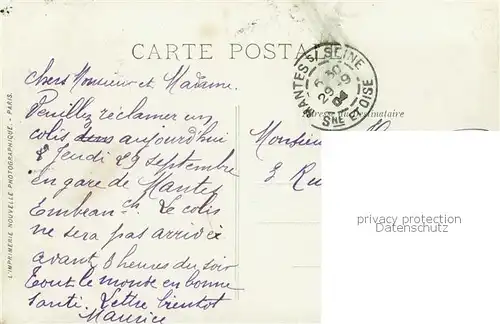 CARTE POSTA
MANTES S/ SEINE
5 30
29 -9
04
SNE ET OISE
Chers Monsieur et Madame.
Veuillez réclamer un
colis dans aujourd'hui
Jeudi 29 septembre
en gare de Mantes
Embean ch. Le colis
ne sera pas arrivé
avant 8 heures du soir
Tout le monde en bonne
santé. Lettre bientôt
Maurice
Monsieur
3 Ru
privacy protection
L'IMPRIMERIE NOUVELLE PHOTOGRAPHIQUE - PARIS.